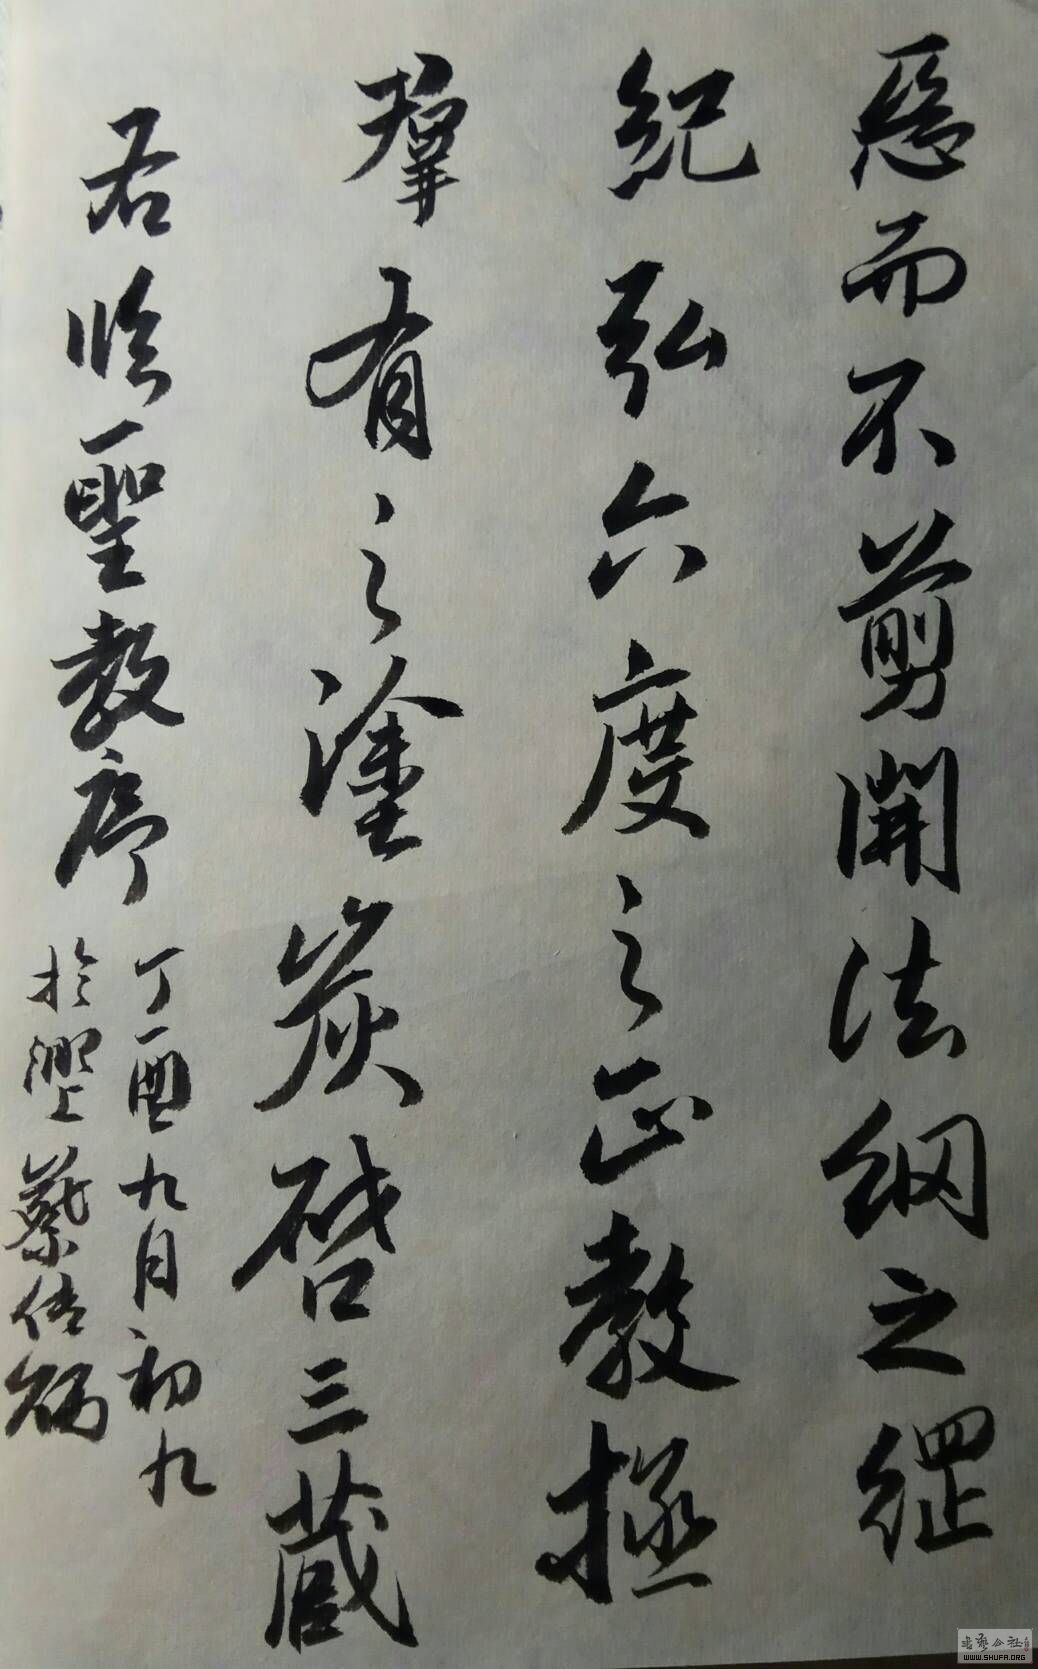 惡而不剪開法網之綱
紀弘六度之正教拯
羣有之塗炭啓三藏
右臨聖教序
丁酉九月初九
於蔡
书艺公社
WWW.SHUFA.ORG